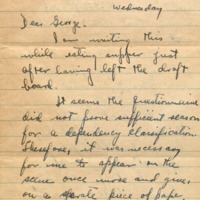 Wednesday
Dear George.
I am writing this
while eating supper just
after having left the draft
board.
It seems the questionnaire
did not prove sufficient reason
for a dependency classification.
Therefore, it was necessary
for me to appear on the
scene once more and give,
on a separate piece of paper,